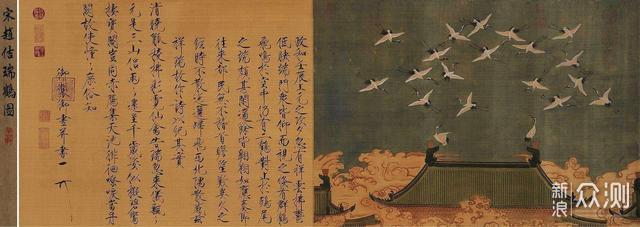 政和壬辰上元之次夕忽有祥雲拂鬱
低映端門衆皆仰而視之倏有群鶴
飛鳴於空中仍有二鶴對止於鴟尾
之端頗甚閑適餘皆翱翔如應奏節
往來都民無不稽首瞻望歎異久之
經時不散迤邐歸飛西北隅散感茲
祥瑞故作詩以紀其實
清曉觚稜拂彩霓仙禽告瑞忽來儀飄飄
元是三山侶兩兩還呈千歲姿似擬碧鸞
棲寶閣豈同赤雁集天池徘徊嘹唳當丹
闕故使憧憧庶俗知
御製御畫并書
宋趙佶瑞鶴圖
新浪众测